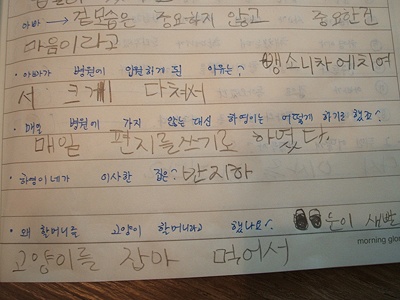 아빠 → 겉모습은 중요하지 않고 중요한건
마음이라고
• 아빠가 병원에 입원하게 된 이유는? 뺑소니차에치여
서 크게 다쳐서
• 매일 병원에 가지 않는 대신 하영이는 어떻게 하기로 했죠?
매일 편지를쓰기로 하였다.
• 하영이네가 이사한 집은? 반지하
• 왜 할머니를 고양이 할머니라고 했나요? 눈이 새빨
고양이를 잡아 먹어서
morning glo